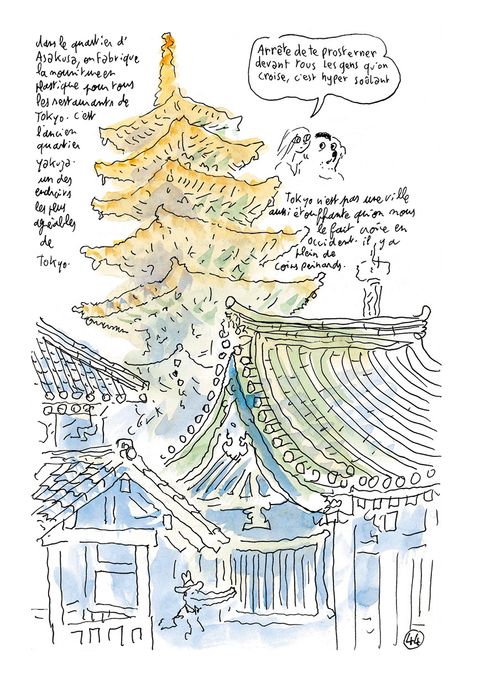 dans le quartier d'
Asakusa, on fabrique
la nourriture en
plastique pour tous
les restaurants de
Tokyo. c'est
l'ancien
quartier
yakuza.
un des
endroits
les plus
agréables
de
Tokyo.
Arrête de te prosterner
devant tous les gens qu'on
croise, c'est hyper soûlant
Tokyo n'est pas une ville
aussi étouffante qu'on nous
le fait croire en
occident. il y a
plein de
coins peinards.
44